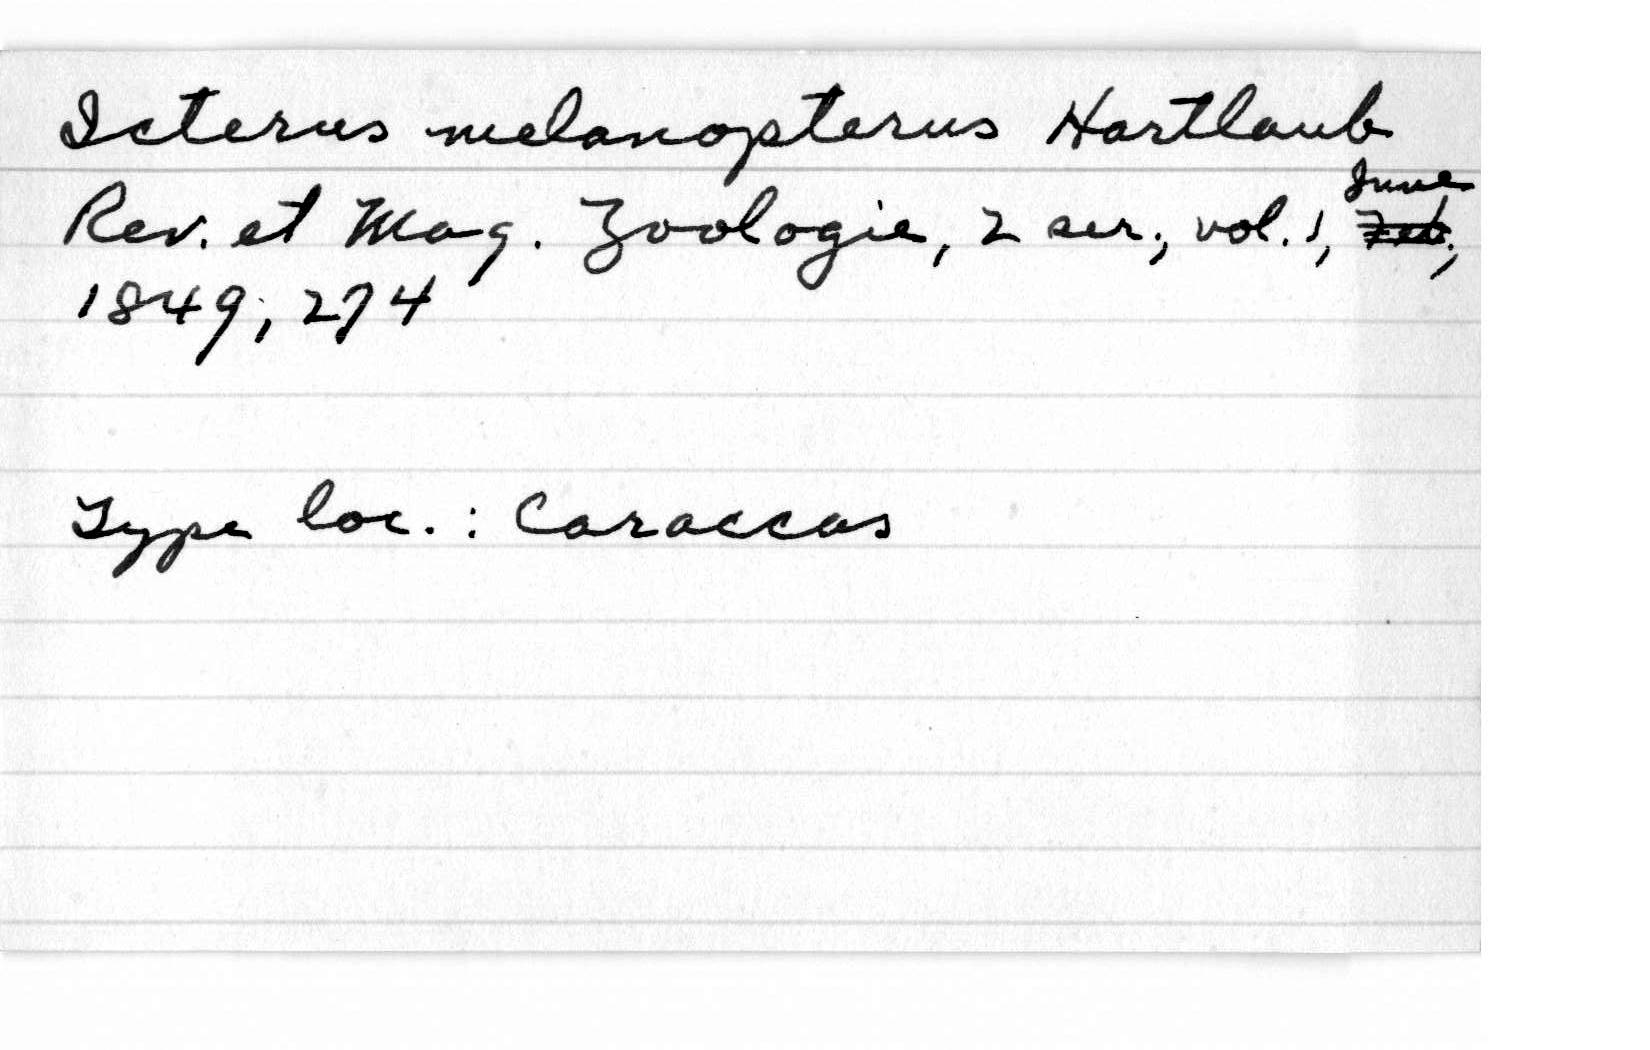 Icterus melanopterus Hartlaub
Rev. et Mag. Zoologie, 2 ser., vol. 1, June
1849, 274
Type loc. : Caraccas